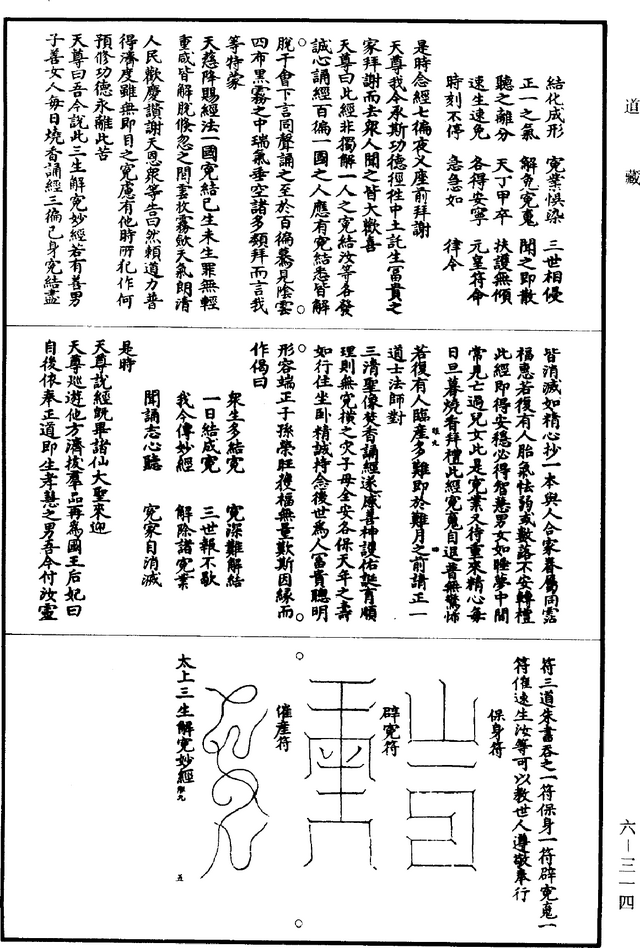 道藏
結化成形　冤業悞染　三世相侵
正一之氣　解免冤鬼　聞之即散
聽之離分　天丁甲卒　扶護無傾
速生速免　各得安寧　元皇符命
時刻不停　急急如　律令
是時念經七徧夜乂座前拜謝
天尊我今承斯功德徑往中土託生冨貴之
家拜謝而去衆人聞之皆大歡喜
天尊曰此經非獨解一人之冤結汝等各發
誠心誦經百徧一國之人應有冤結悉皆解
脫于會下言同聲誦之至於百徧驀見陰雲
四布黑霧之中瑞氣垂空諸多頻拜而言我
等特蒙
天慈降賜經法一國冤結已生未生罪無輕
重咸皆解脫倐忽之間雲收霧歛天氣朗清
人民歡慶讚謝天恩衆等告曰然頼道力普
得濟度雖無即目之冤慮有他時所犯作何
預修功德永離此苦
天尊曰吾今說此三生解冤妙經若有善男
子善女人每日燒香誦經三徧已身冤結盡
皆消滅如精心抄一本與人合家眷屬同霑
福惠若復有人胎氣怯弱或數落不安轉禮
此經即得安穩必得智慧男女如睡夢中間
常見亡過兒女此是冤業又待重來精心每
日旦暮燒香拜禮此經冤鬼自退普無驚怖
若復有人臨產多難即於難月之前請正一
道士法師對
三清聖像焚香誦經遂感善神護佑誕育順
理則無冤橫之灾子母全安各保天年之壽
如行住坐卧精誠持念後世爲人冨貴聰明
形容端正子孫榮旺獲福無量歎斯因緣而
作偈曰
衆生多結冤　冤深難解結
一日結成冤　三世報不歇
我今傳妙經　解除諸冤業
聞誦志心聽　冤家自消滅
是時
天尊說經旣畢諸仙大聖來迎
天尊巡遊他方濟拔羣品再爲國王后妃曰
自後依奉正道即生孝慧之男吾今付汝靈
符三道朱書吞之一符保身一符辟冤鬼一
符催速生汝等可以教世人遵敬奉行
保身符
辟冤符
催產符
太上三生解冤妙經
五
六—三一四